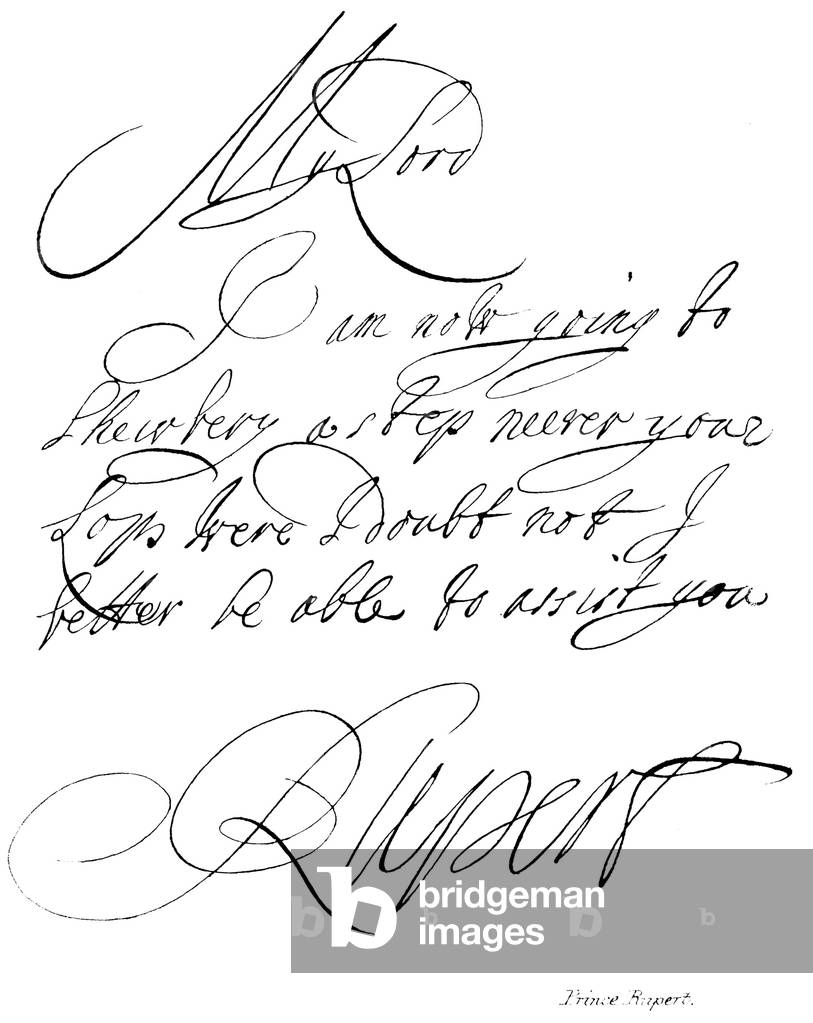 My Lord
I am now going to
Shewbery a step neerer your
Lops were I doubt not I
better be able to assist you
Rupert
b bridgeman
images
Prince Rupert.